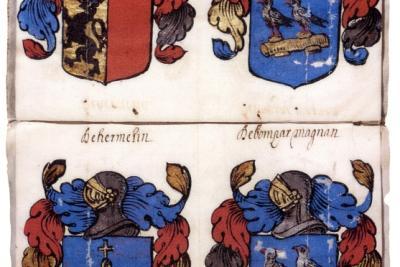 Behermelin
Bebomgar magnan